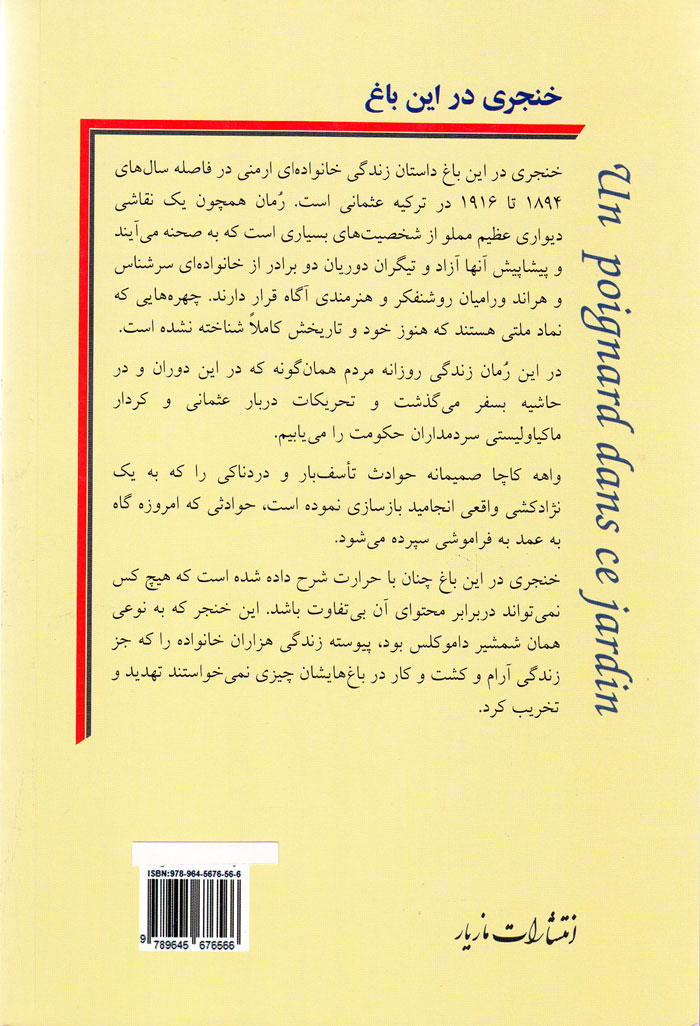 خنجری در این باغ
خنجری در این باغ داستان زندگی خانواده‌ای ارمنی در فاصله سال‌های
۱۸۹۴ تا ۱۹۱۶ در ترکیه عثمانی است. رُمان همچون یک نقاشی
دیواری عظیم مملو از شخصیت‌های بسیاری است که به صحنه می‌آیند
و پیشاپیش آنها آزاد و تیگران دوریان دو برادر از خانواده‌ای سرشناس
و هراند ورامیان روشنفکر و هنرمندی آگاه قرار دارند. چهره‌هایی که
نماد ملتی هستند که هنوز خود و تاریخش کاملاً شناخته نشده است.
در این رُمان زندگی روزانه مردم همان‌گونه که در این دوران و در
حاشیه بسفر می‌گذشت و تحریکات دربار عثمانی و کردار
ماکیاولیستی سردمداران حکومت را می‌یابیم.
واهه کاچا صمیمانه حوادث تأسف‌بار و دردناکی را که به یک
نژادکشی واقعی انجامید بازسازی نموده است، حوادثی که امروزه گاه
به عمد به فراموشی سپرده می‌شود.
خنجری در این باغ چنان با حرارت شرح داده شده است که هیچ کس
نمی‌تواند دربرابر محتوای آن بی‌تفاوت باشد. این خنجر که به نوعی
همان شمشیر داموکلس بود، پیوسته زندگی هزاران خانواده را که جز
زندگی آرام و کشت و کار در باغ‌هایشان چیزی نمی‌خواستند تهدید و
تخریب کرد.
Un poignard dans ce jardin
ISBN:978-964-5676-56-6
9 789645 676566
انتشارات مازیار